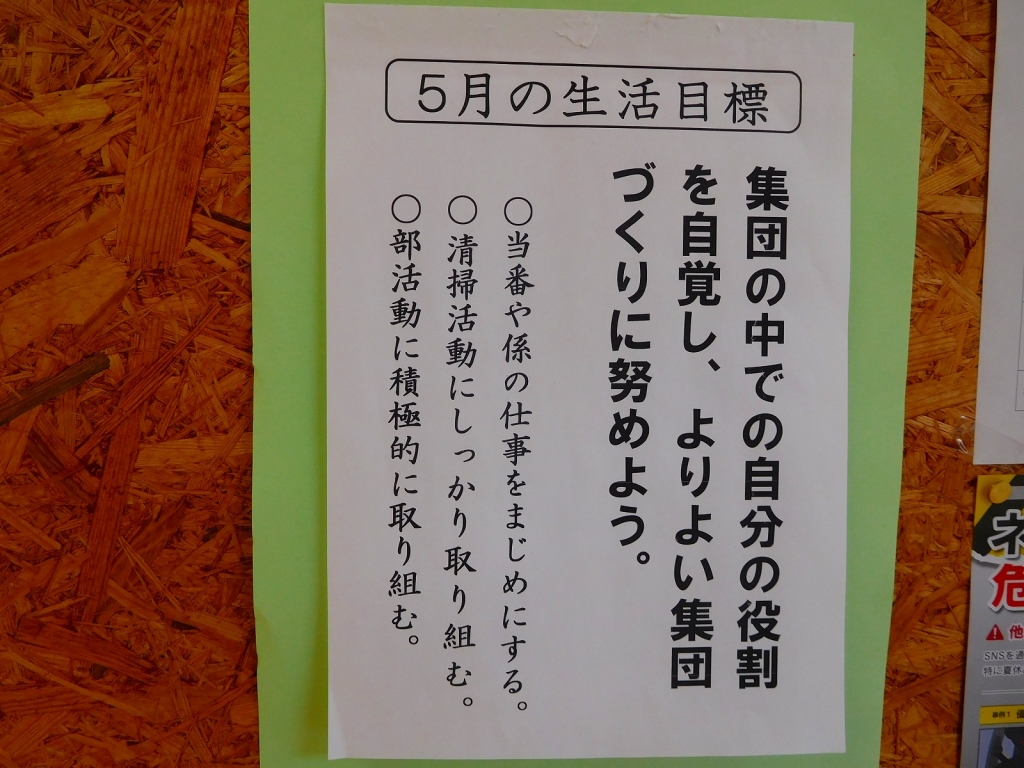 5月の生活目標
集団の中での自分の役割
を自覚し、よりよい集団
づくりに努めよう。
○当番や係の仕事をまじめにする。
○清掃活動にしっかり取り組む。
○部活動に積極的に取り組む。
ネ
危
他
SNSを通
特に夏休
事例1